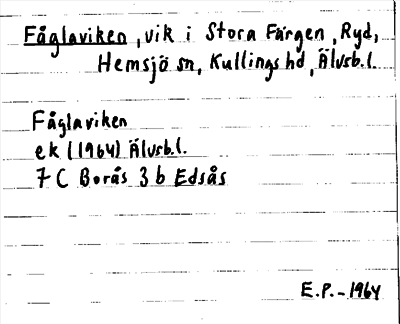 Fåglaviken, vik i Stora Färgen, Ryd,
Hemsjö sn, Kullings hd, Älvsb.l.
Fåglaviken
ek (1964) Älvsb.l.
7 C Borås 3 b Edsås
E.P.-1964